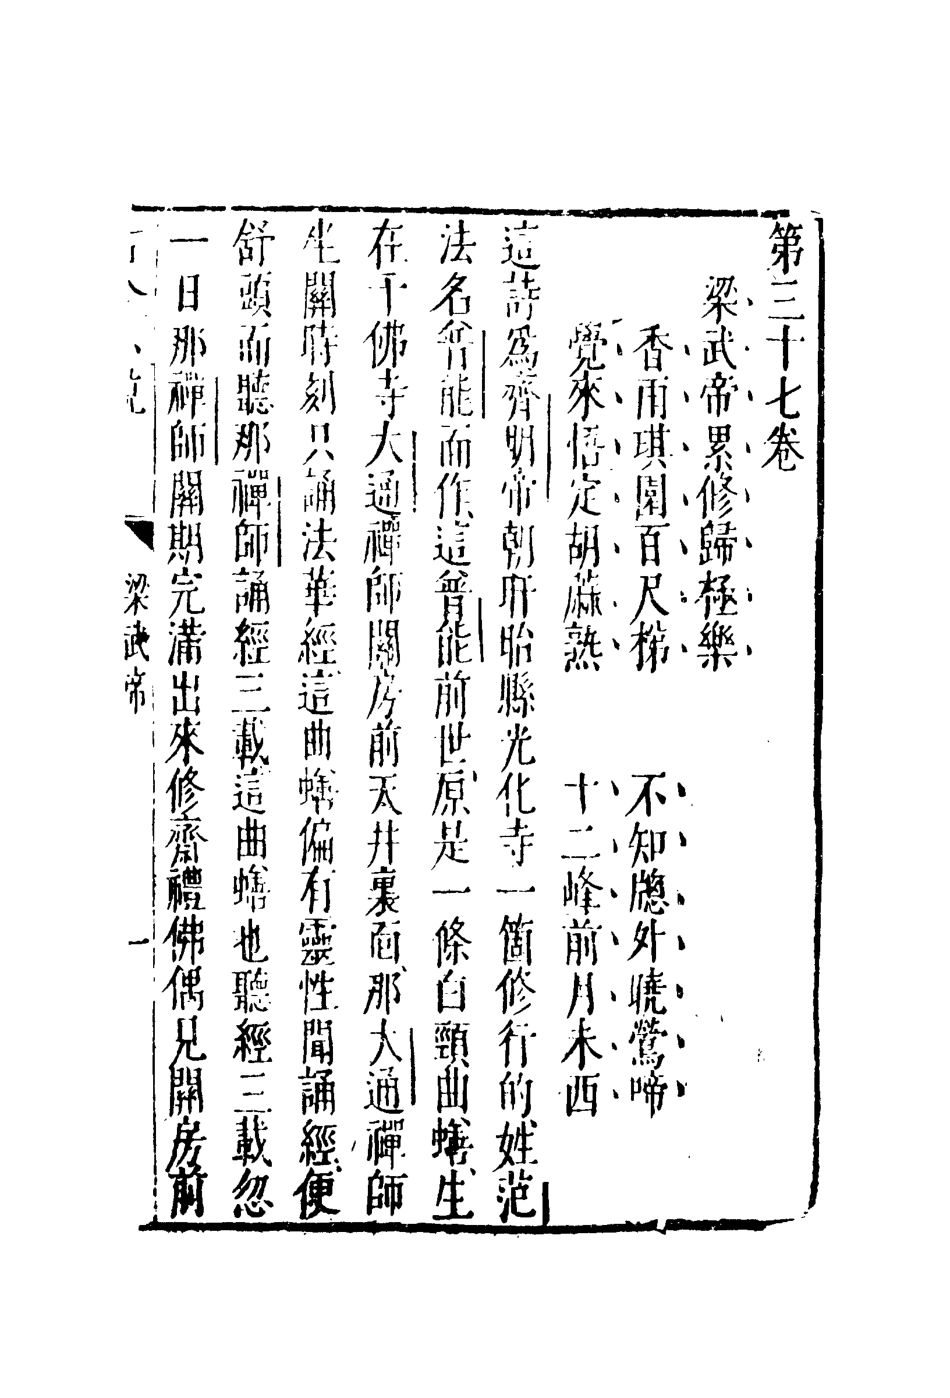 第三十七卷
梁武帝累修歸極樂
香雨琪園百尺梯 不知牕外曉鶯啼
覺來悟定胡蔴熟 十二峰前月未西
這詩爲齊明帝朝盱眙縣光化寺一箇修行的姓范
法名普能而作這普能前世原是一條白頸曲蟮生
在千佛寺大通禪師關房前天井裏靣那大通禪師
坐關時刻只誦法華經這曲蟮偏有靈性聞誦經便
舒頭而聽那禪師誦經三載這曲蟮也聽經三載忽
一日那禪師關期完滿出來修齋禮佛偶見關房前
梁武帝
一